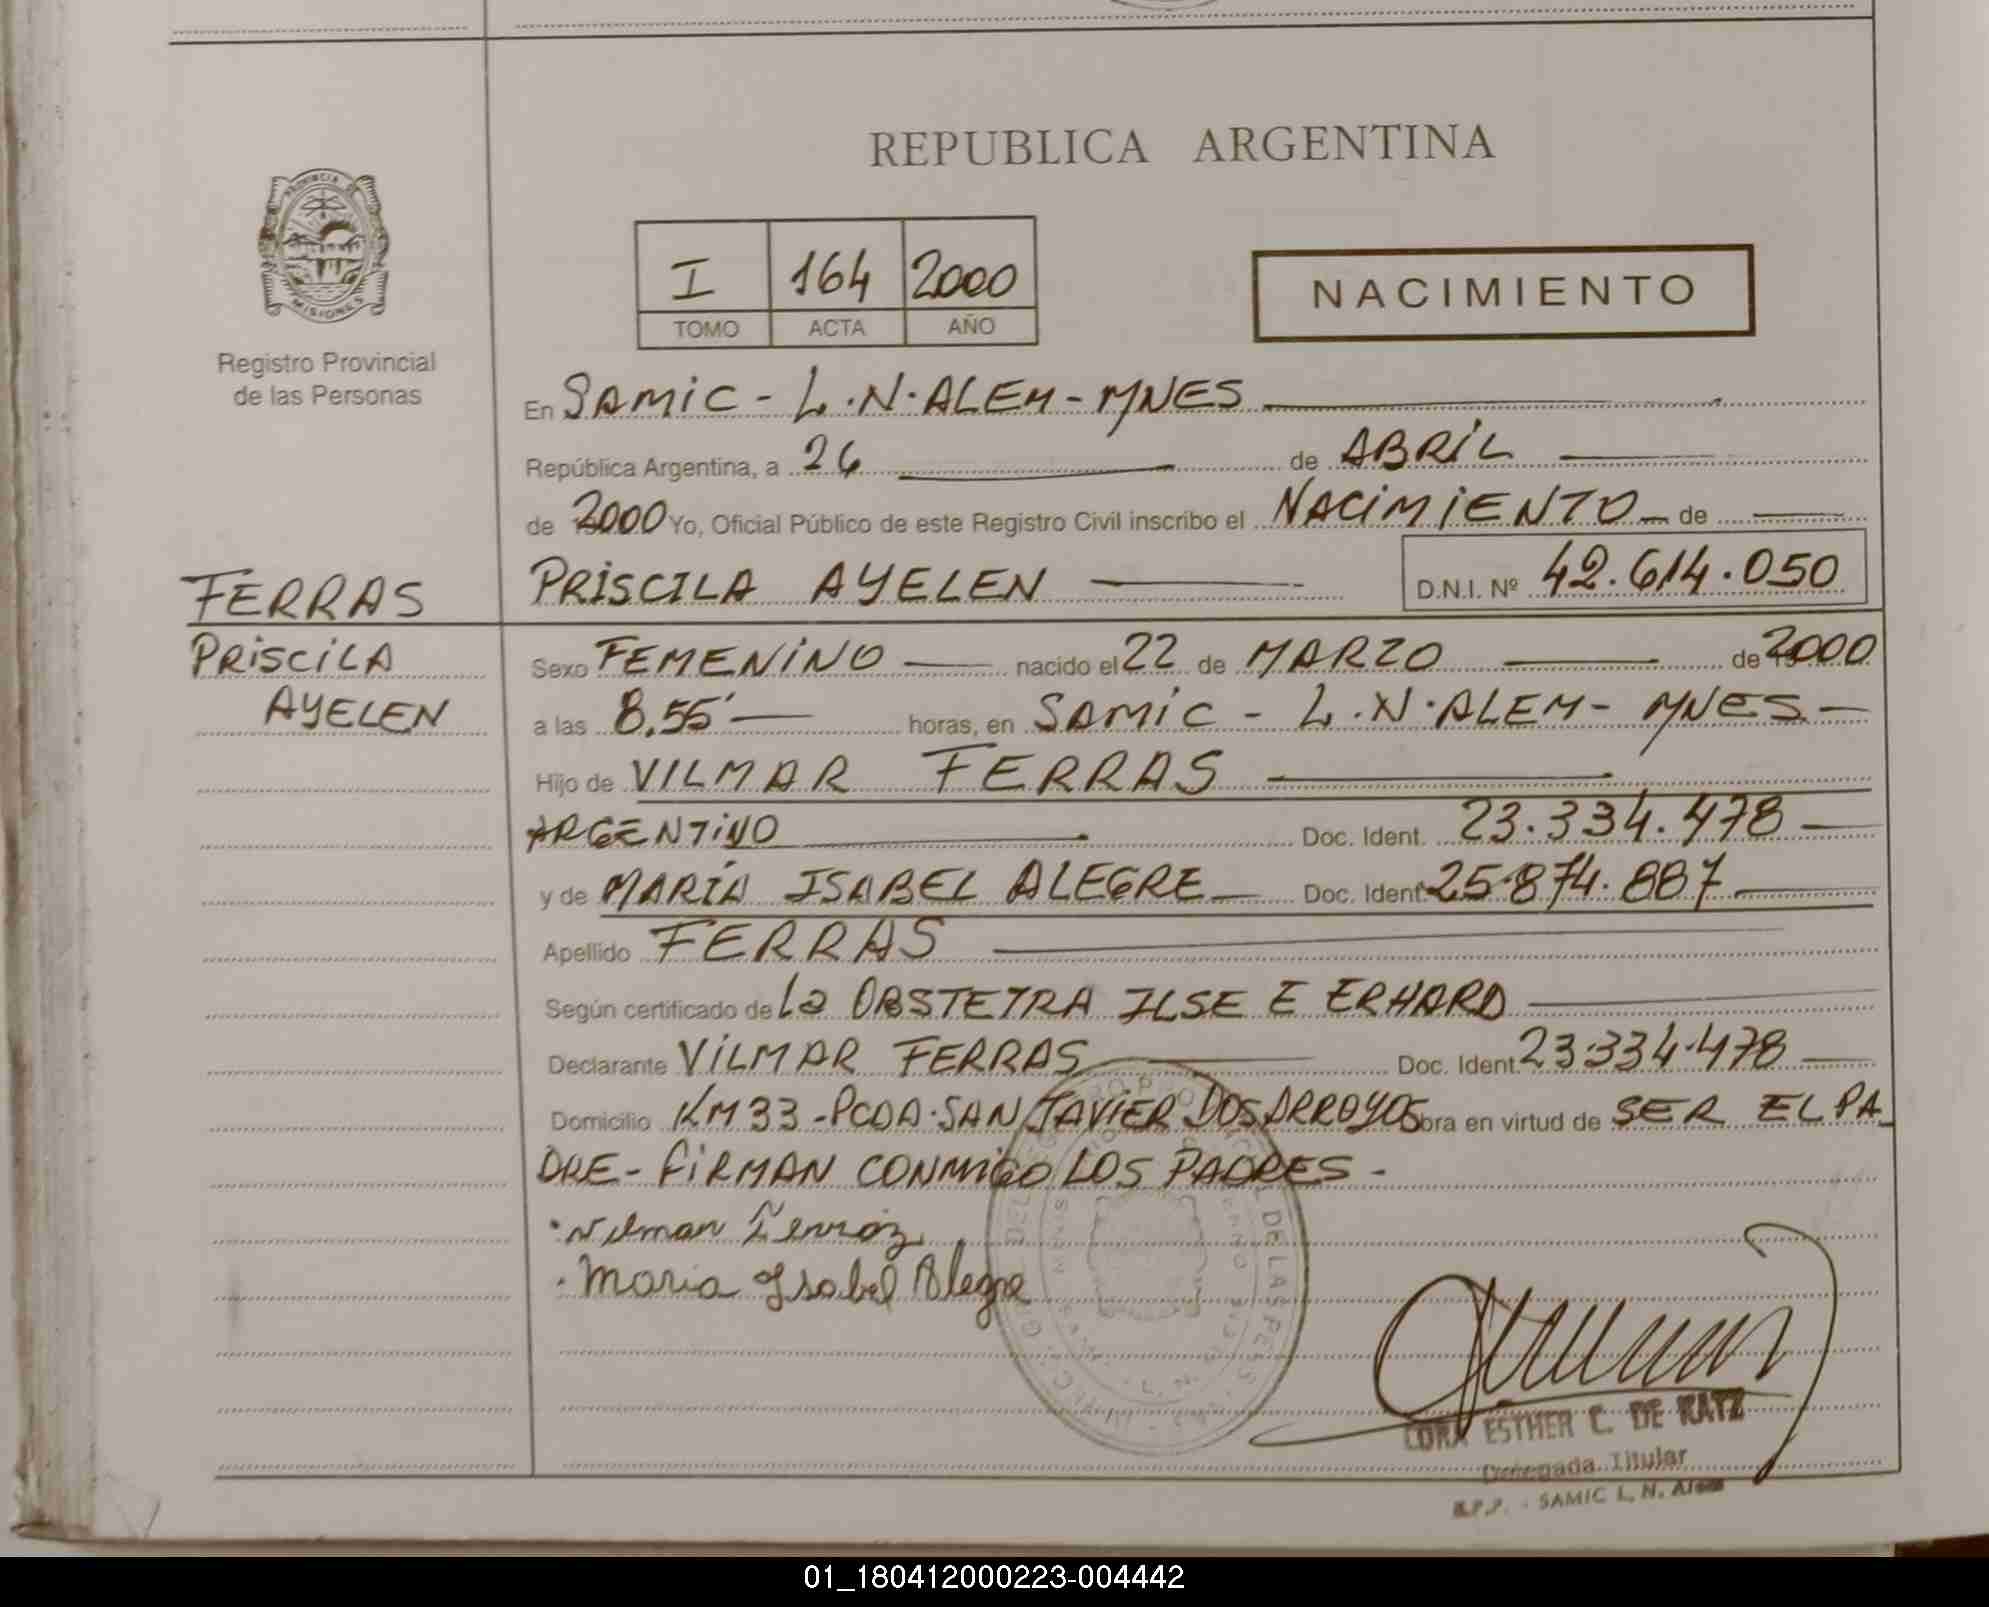 REPUBLICA ARGENTINA
PROVINCIA DE
MISIONES
I 164 2000
TOMO ACTA AÑO
NACIMIENTO
Registro Provincial
de las Personas
En SAMIC - L.N.ALEM - MNES
República Argentina, a 26 de ABRIL
de 2000 Yo, Oficial Público de este Registro Civil inscribo el NACIMIENTO de
FERRAS
PRISCILA AYELEN D.N.I. Nº 42.614.050
PRISCILA
AYELEN
Sexo FEMENINO nacido el 22 de MARZO de 2000
a las 8,55' horas, en SAMIC - L.N.ALEM - MNES
Hijo de VILMAR FERRAS
ARGENTINO Doc. Ident. 23.334.478
y de MARÍA ISABEL ALEGRE Doc. Ident. 25.874.887
Apellido FERRAS
Según certificado de La OBSTETRA ILSE E ERHARD
Declarante VILMAR FERRAS Doc. Ident. 23.334.478
Domicilio KM 33 - PCDA. SAN JAVIER DOS ARROYOS obra en virtud de SER EL PA_
DRE - FIRMAN CONMIGO LOS PADRES -
Maria Ysabel Alegre
ESTHER C. DE RATZ
Delegada Titular
R.P.P. - SAMIC L. N. Alem
01_180412000223-004442